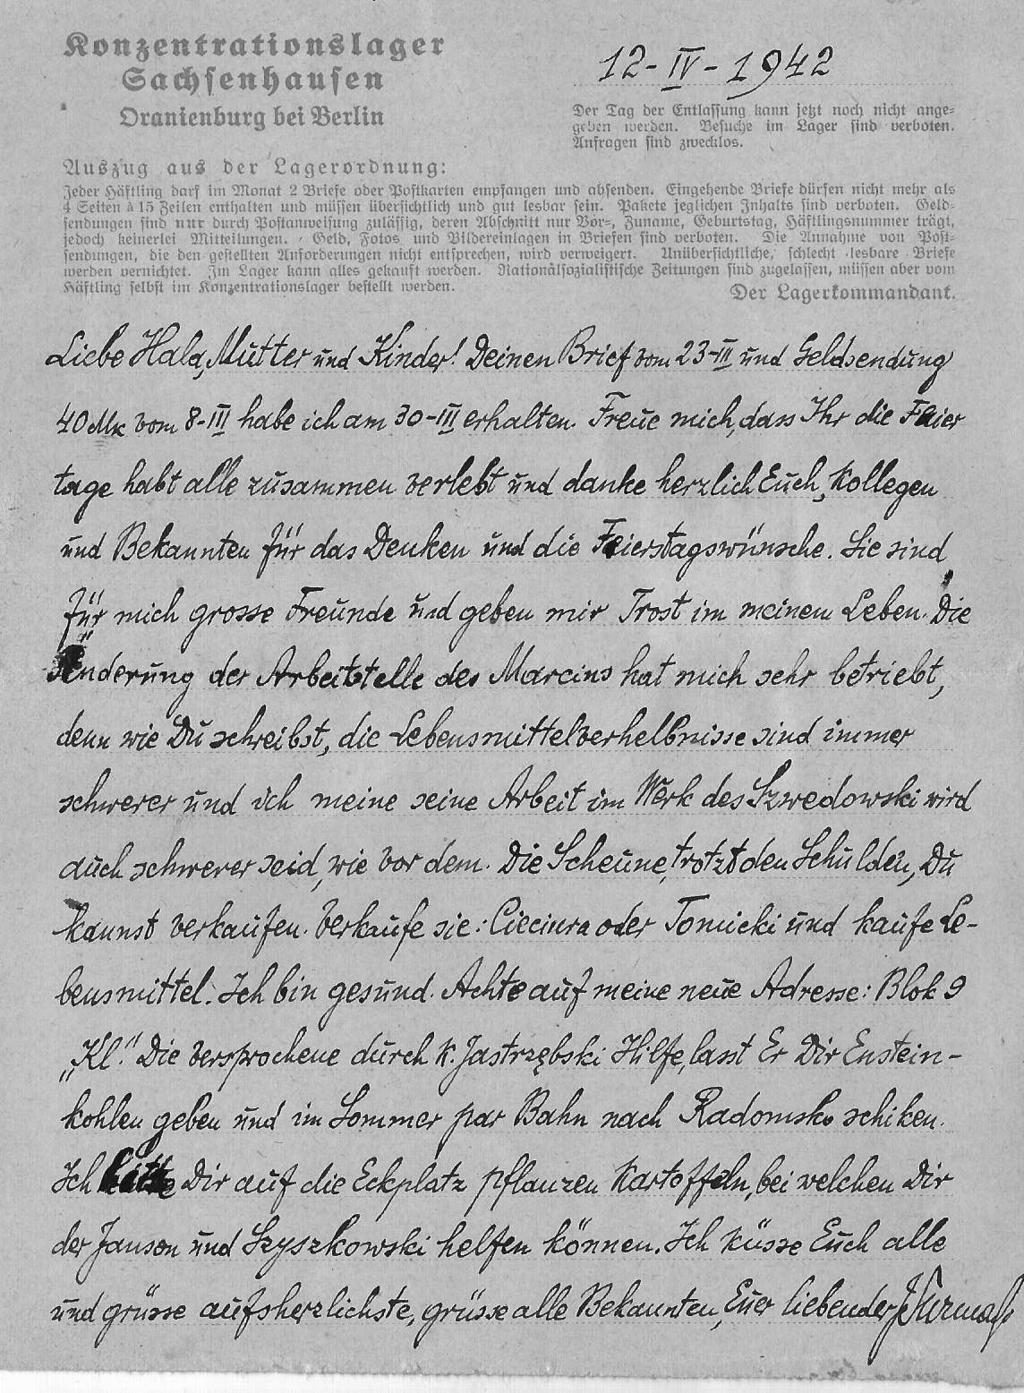 Konzentrationslager
Sachsenhausen
Oranienburg bei Berlin
12-IV-1942
Der Tag der Entlassung kann jetzt noch nicht ange=
geben werden. Besuche im Lager sind verboten.
Anfragen sind zwecklos.
Auszug aus der Lagerordnung:
Jeder Häftling darf im Monat 2 Briefe oder Postkarten empfangen und absenden. Eingehende Briefe dürfen nicht mehr als
4 Seiten à 15 Zeilen enthalten und müssen übersichtlich und gut lesbar sein. Pakete jeglichen Inhalts sind verboten. Geld=
sendungen sind nur durch Postanweisung zulässig, deren Abschnitt nur Vor=, Zuname, Geburtstag, Häftlingsnummer trägt,
jedoch keinerlei Mitteilungen. Geld, Fotos und Bildereinlagen in Briefen sind verboten. Die Annahme von Post=
sendungen, die den gestellten Anforderungen nicht entsprechen, wird verweigert. Unübersichtliche, schlecht lesbare Briefe
werden vernichtet. Im Lager kann alles gekauft werden. Nationalsozialistische Zeitungen sind zugelassen, müssen aber vom
Häftling selbst im Konzentrationslager bestellt werden.
Der Lagerkommandant.
Liebe Hala, Mutter und Kinder! Deinen Brief vom 23-III und Geldsendung
40 Mk vom 8-III habe ich am 30-III erhalten. Freue mich, dass Ihr die Feier
tage habt alle zusammen verlebt und danke herzlich Euch, Kollegen
und Bekannten für das Denken und die Feierstagswünsche. Sie sind
für mich grosse Freunde und geben mir Trost im meinem Leben. Die
Änderung der Arbeitstelle des Marcins hat mich sehr betriebt,
denn wie Du schreibst, die Lebensmittelverhelbnisse sind immer
schwerer und ich meine seine Arbeit im Werk des Szwedowski wird
auch schwerer seid, wie vor dem. Die Scheune, trotzt den Schulden, Du
kannst verkaufen. Verkaufe sie: Cieciura oder Tomicki und kaufe Le-
bensmittel. Ich bin gesund. Achte auf meine neue Adresse: Blok 9
„Kl". Die versprochene durch K. Jastrzębski Hilfe, lasst Er Dir Enstein-
kohlen geben und im Sommer par Bahn nach Radomsko schiken.
Ich bitte Dir auf die Eckplatz pflanzen Kartoffeln, bei welchen Dir
der Janson und Szyszkowski helfen können. Ich küsse Euch alle
und grüsse aufsherzlichste, grüsse alle Bekannten, Euer liebender